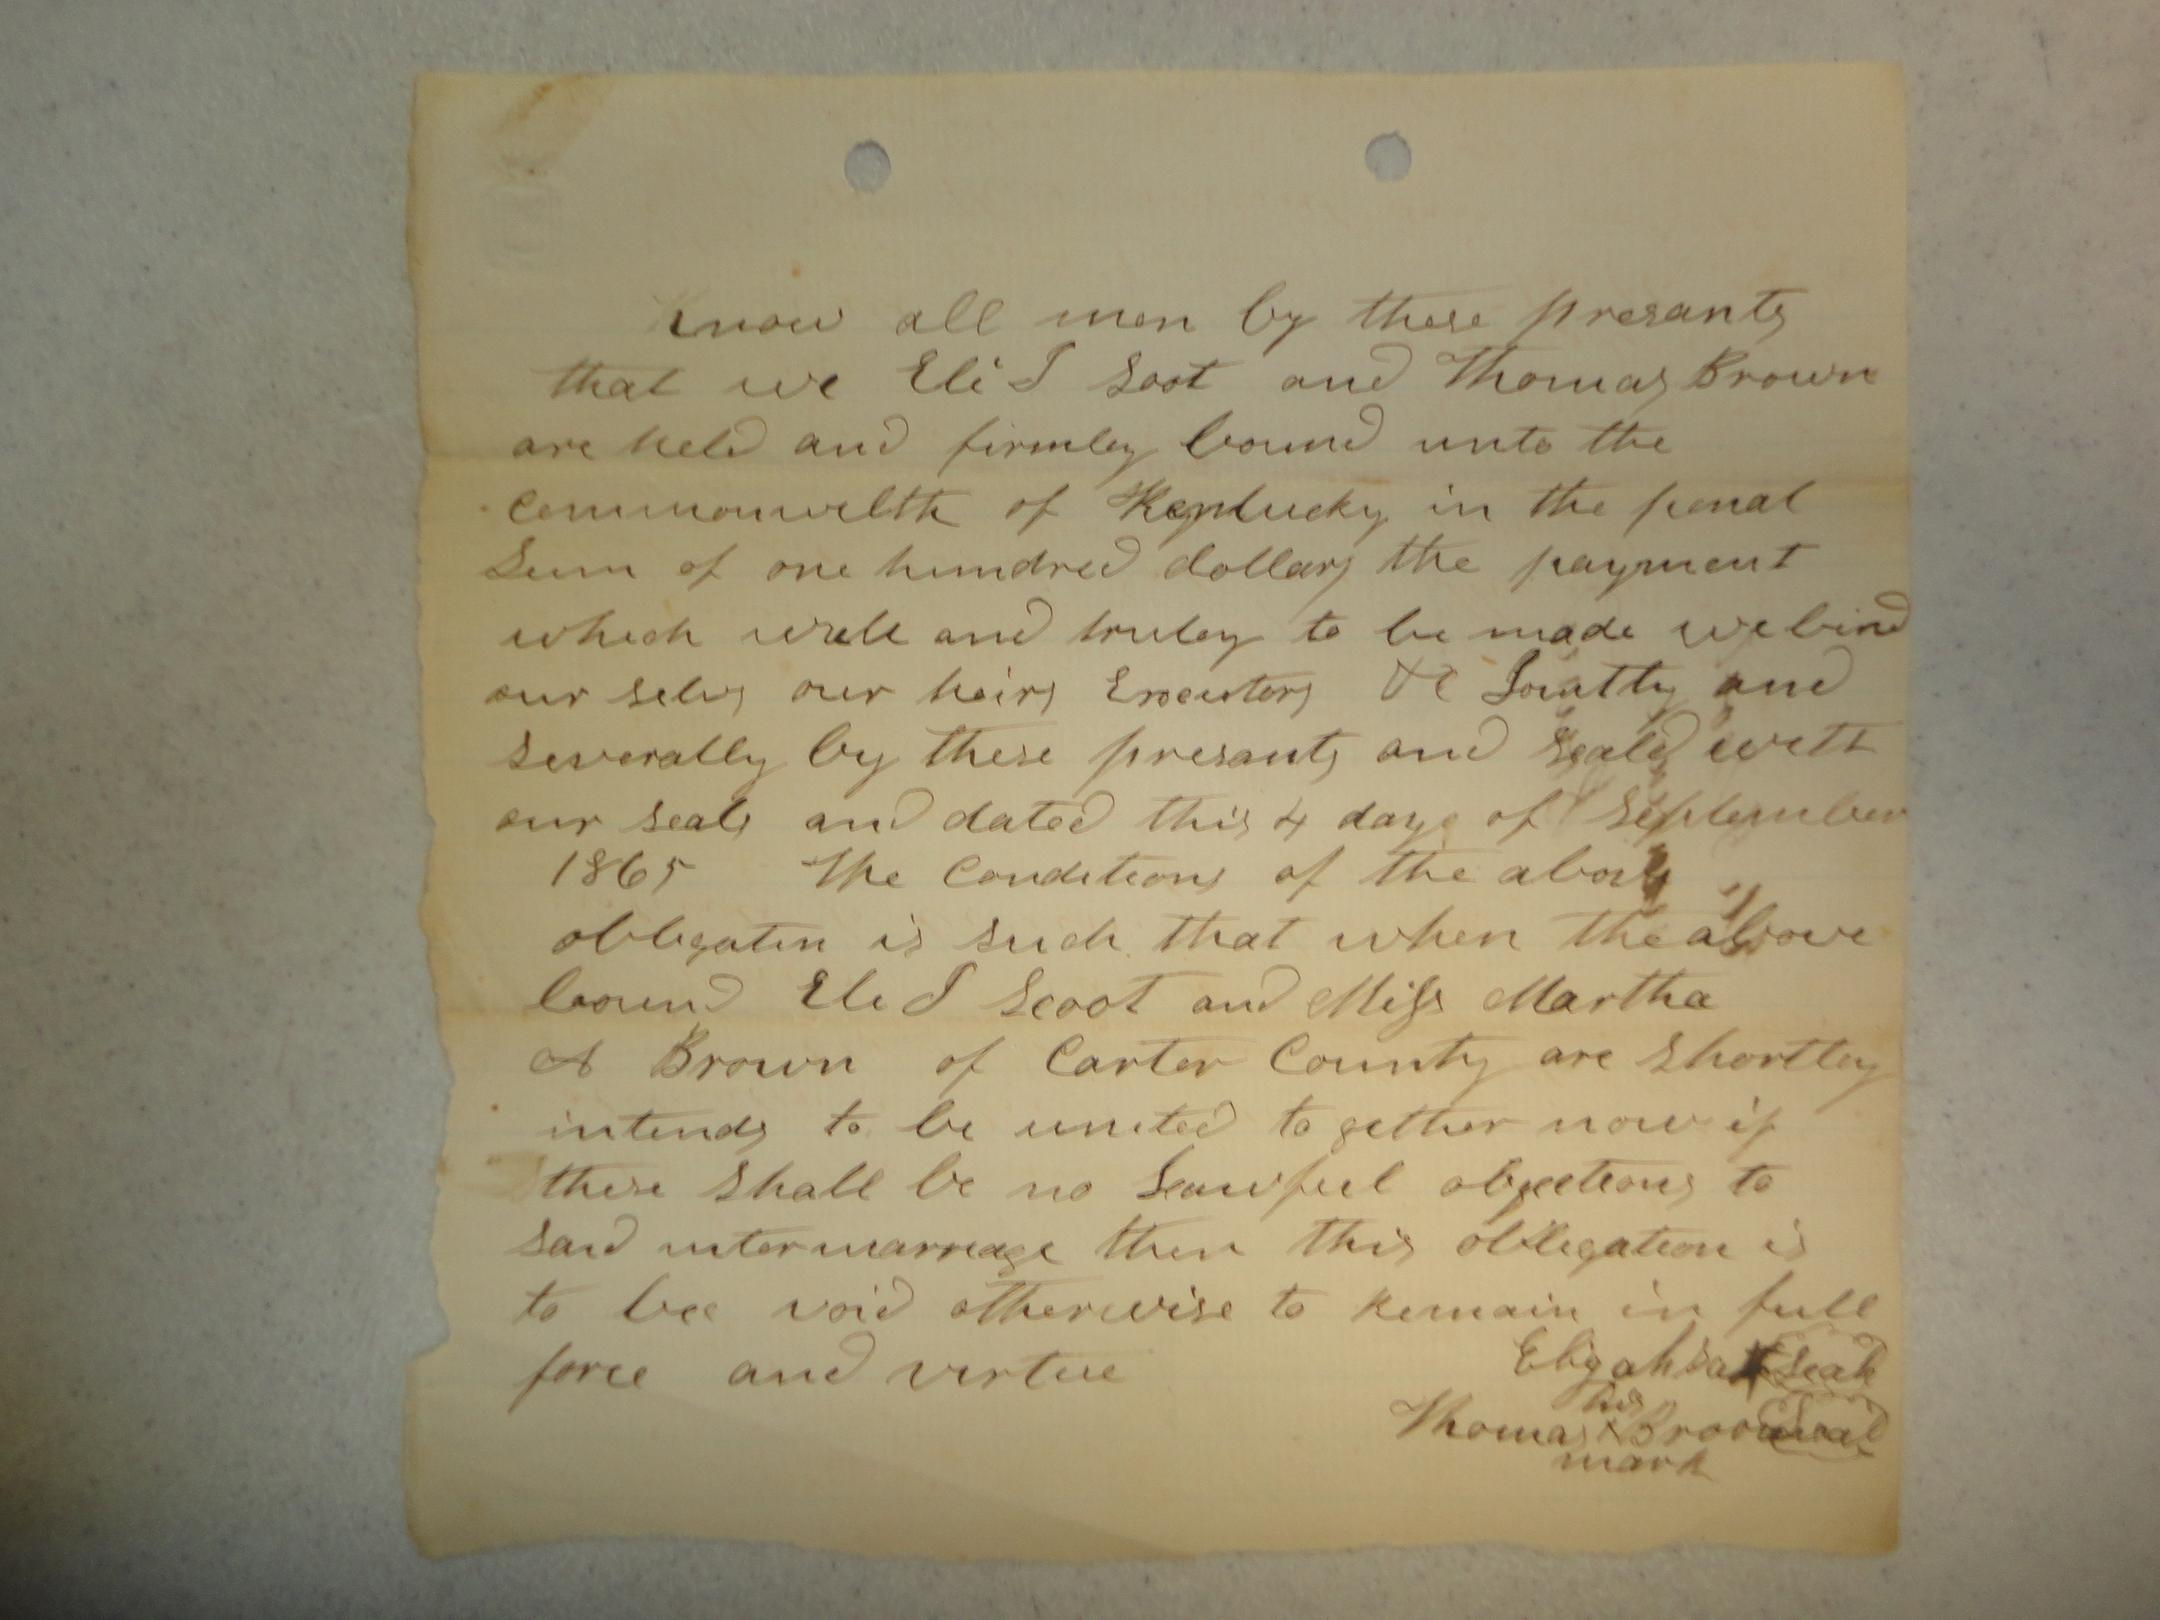 Know all men by these presants
that we Eli J Soot and Thomas Brown
are held and firmley bound unto the
Commonwelth of Kentucky in the penal
Sum of one hundred dollars the payment
which well and truley to be made we bind
our selvs our heirs Executors &c and
severally by these presants and seald with
our seals and dated this 4 day of September
1865 The Conditions of the above
obligatin is such that when the above
bound Eli J Scoot and Miss Martha
A Brown of Carter County are shortley
intends to be united to gether now if
there shall be no Lawful objections to
said intermarriage then this obligation is
to bee void otherwise to remain in full
force and virtue
Eligah Seal
his
Thomas X Brown Seal
mark